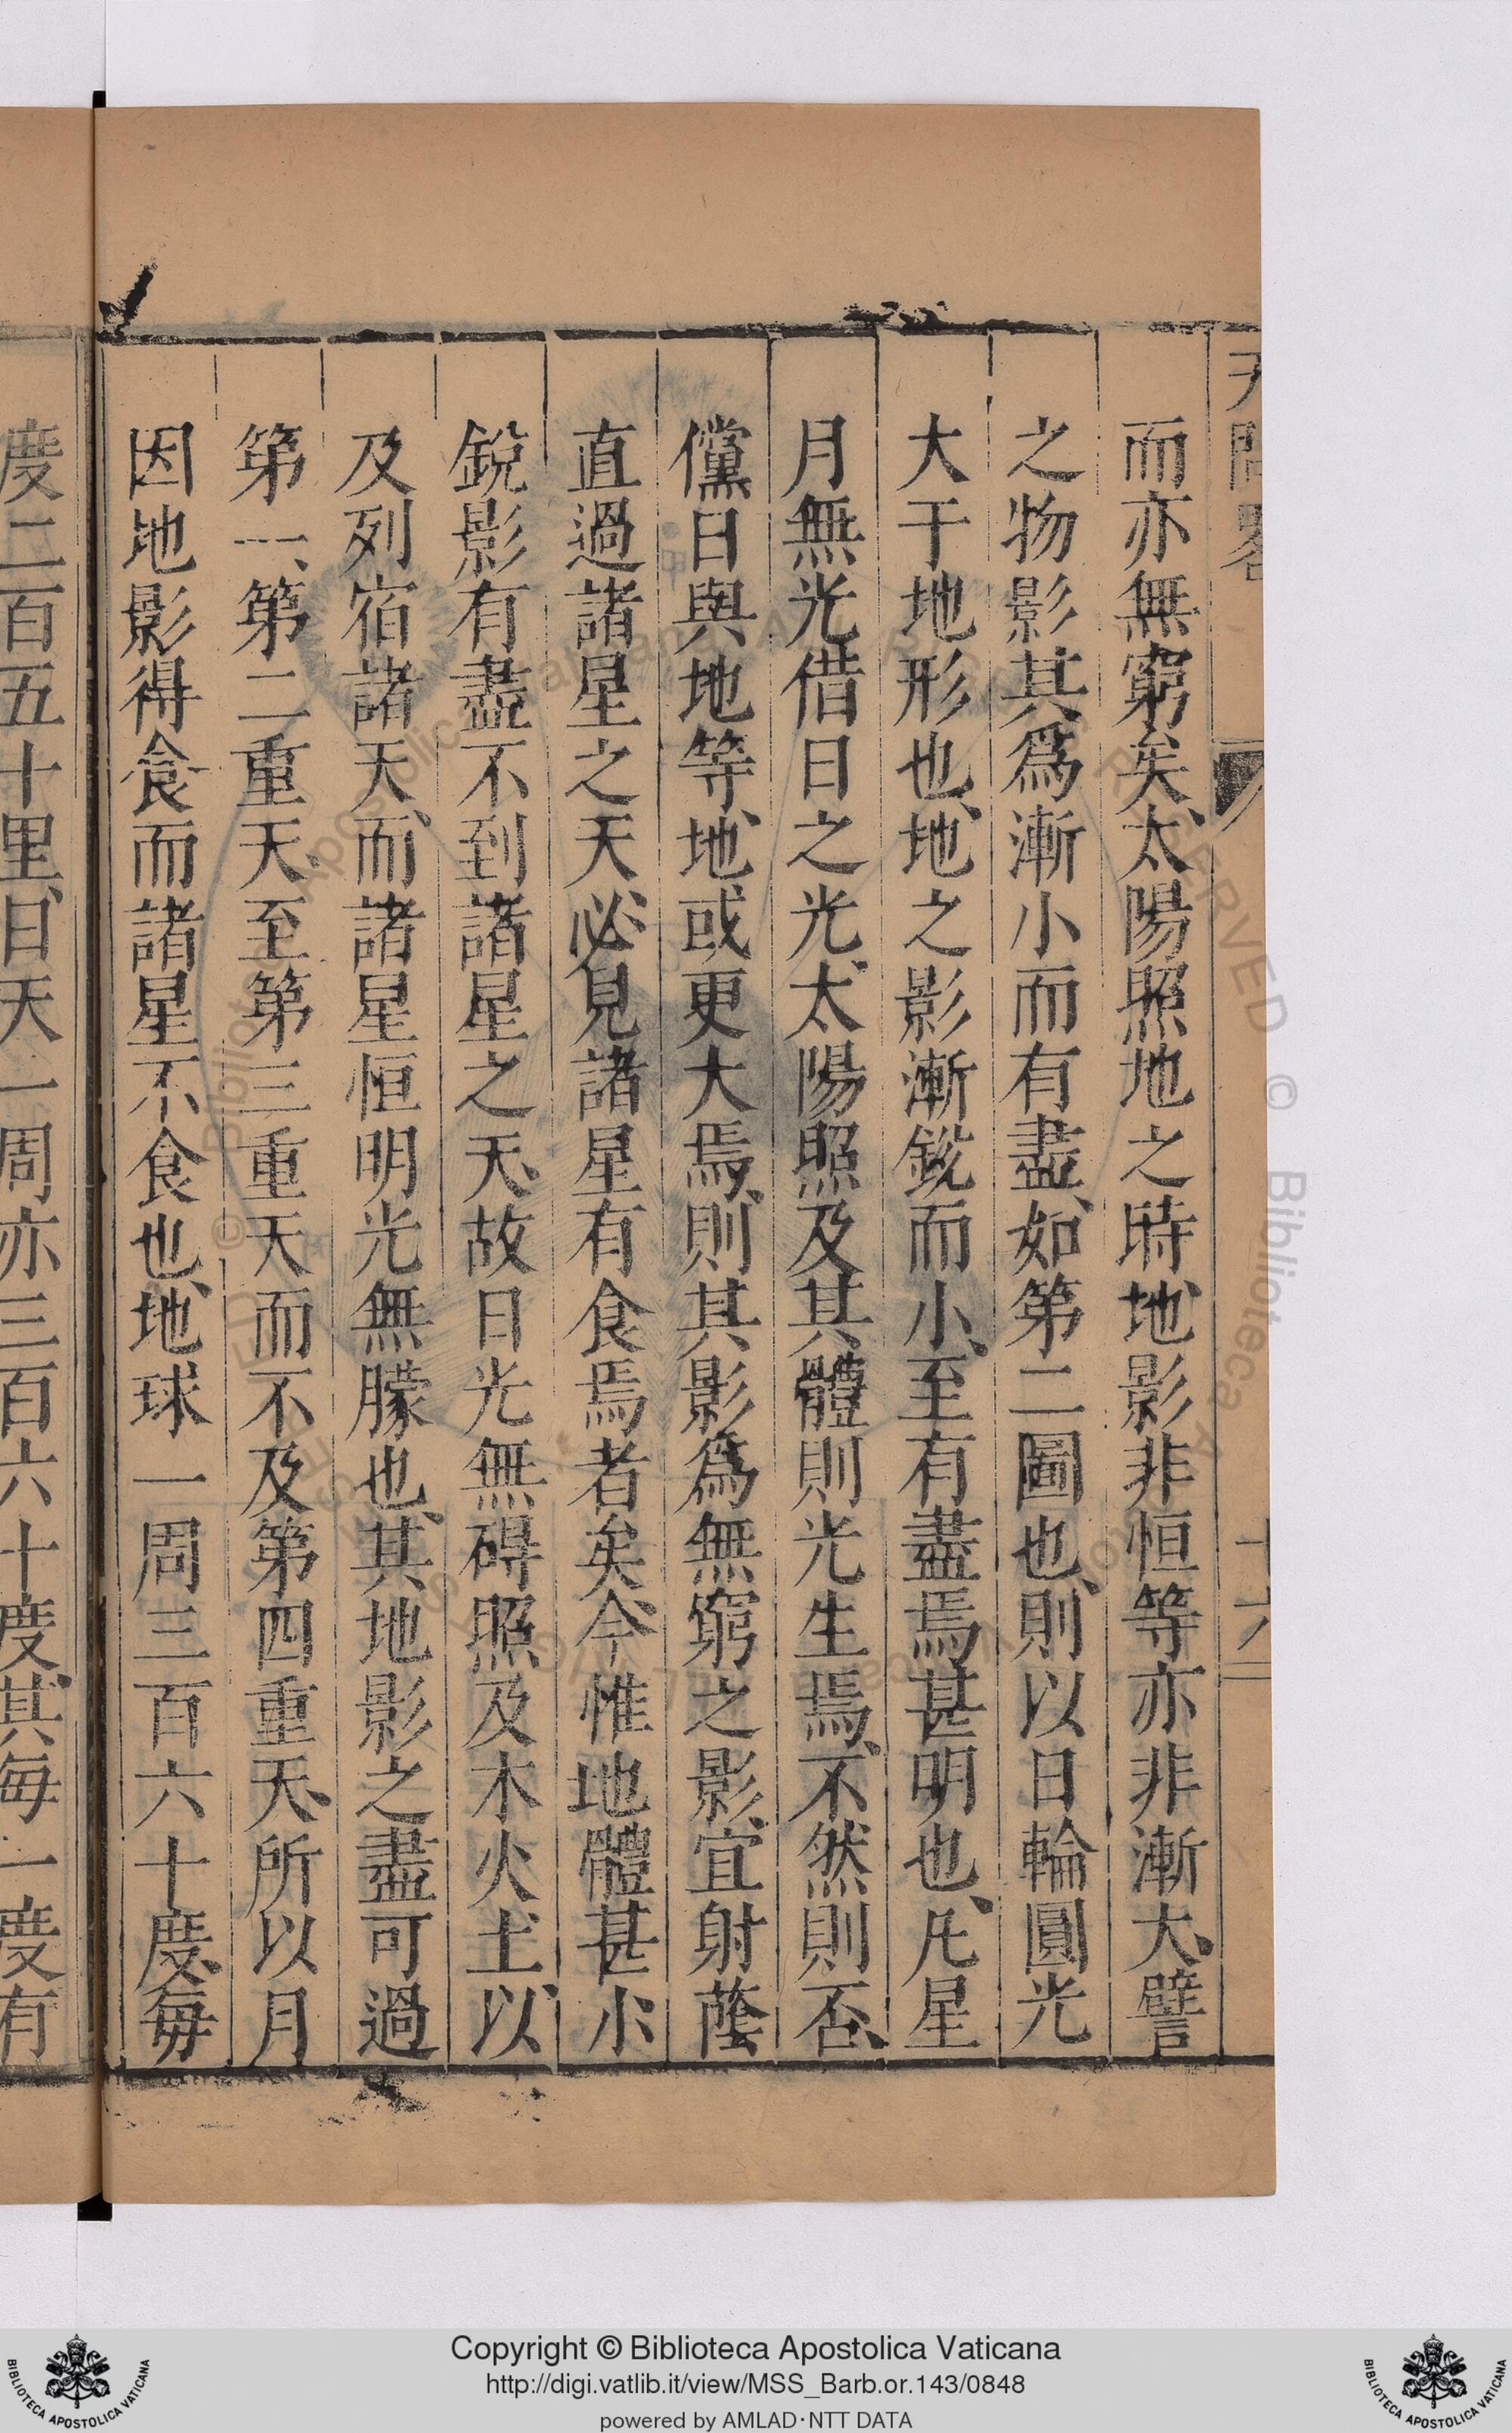 天問略
十六
而亦無窮矣、太陽照地之時、地影非恒等亦非漸大、譬
之物影、其爲漸小而有盡、如第二圖也、則以日輪圓光
大于地形也、地之影漸銳而小、至有盡焉甚明也、凡星
月無光借日之光、太陽照及其體則光生焉、不然則否、
儻日與地等、地或更大焉、則其影爲無窮之影、宜射蔭
直過諸星之天、必見諸星有食焉者矣、今惟地體甚小
銳影有盡不到諸星之天、故日光無碍照及木火土、以
及列宿諸天、而諸星恒明光無朦也、其地影之盡可過
第一、第二重天、至第三重天而不及第四重天、所以月
因地影得食而諸星不食也、地球一周三百六十度、每
度二百五十里、日天一周亦三百六十度、其每一度有
Copyright © Biblioteca Apostolica Vaticana
http://digi.vatlib.it/view/MSS_Barb.or.143/0848
powered by AMLAD·NTT DATA
BIBLIOTECA APOSTOLICA VATICANA
BIBLIOTECA APOSTOLICA VATICANA